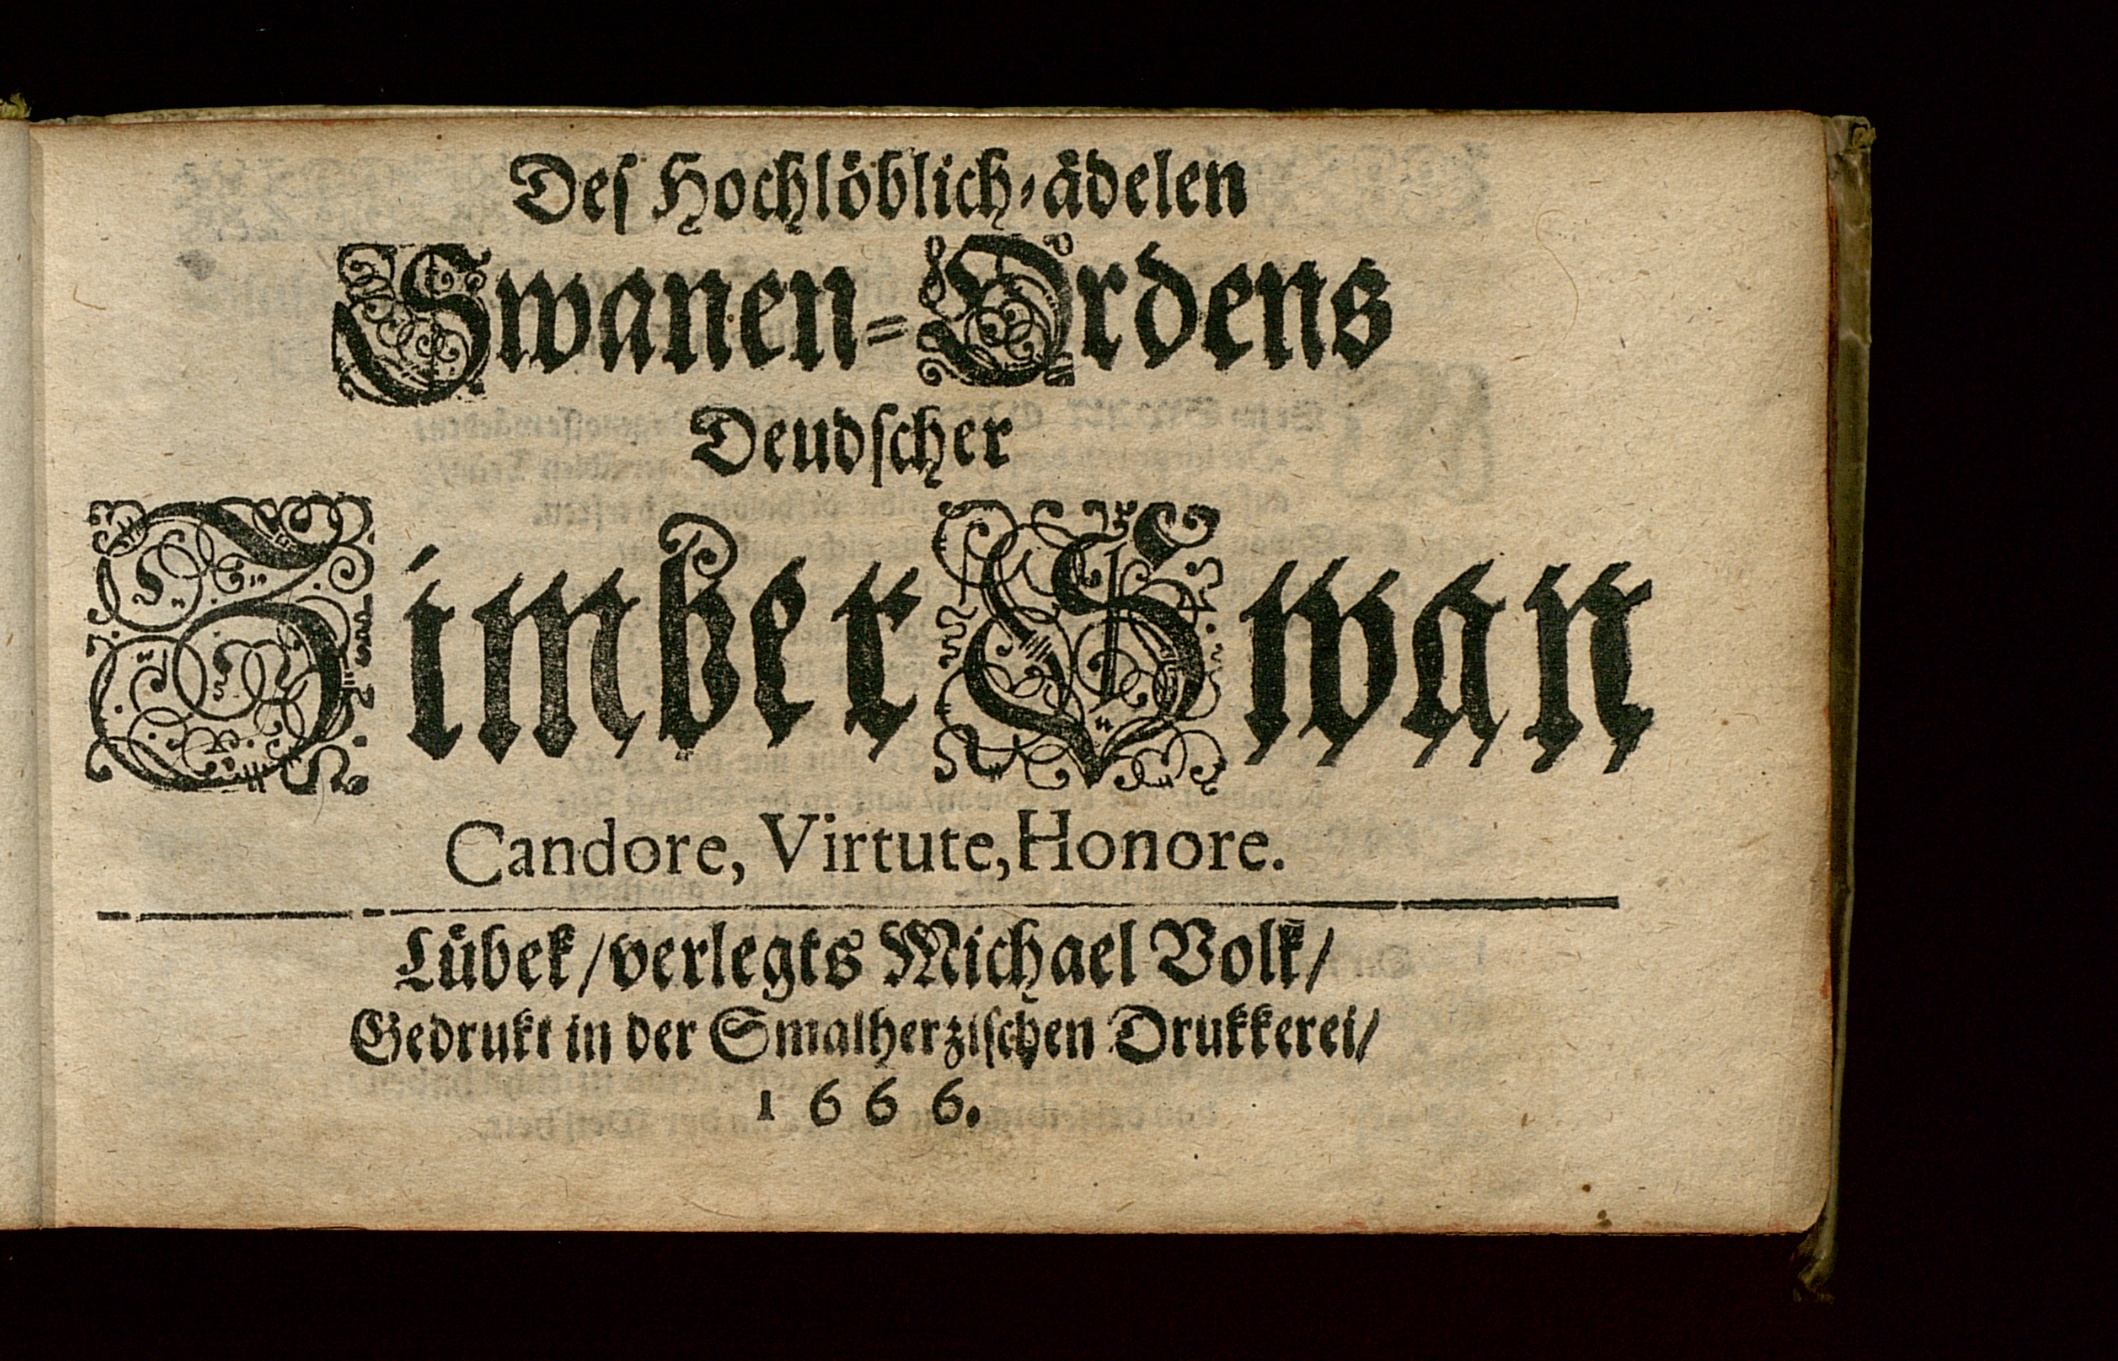 Des Hochlöblich-ädelen
Swanen-Ordens
Deudscher
ZimberSwan
Candore, Virtute, Honore.
Lübek/verlegts Michael Volk/
Gedrukt in der Smalherzischen Drukkerei/
1666.